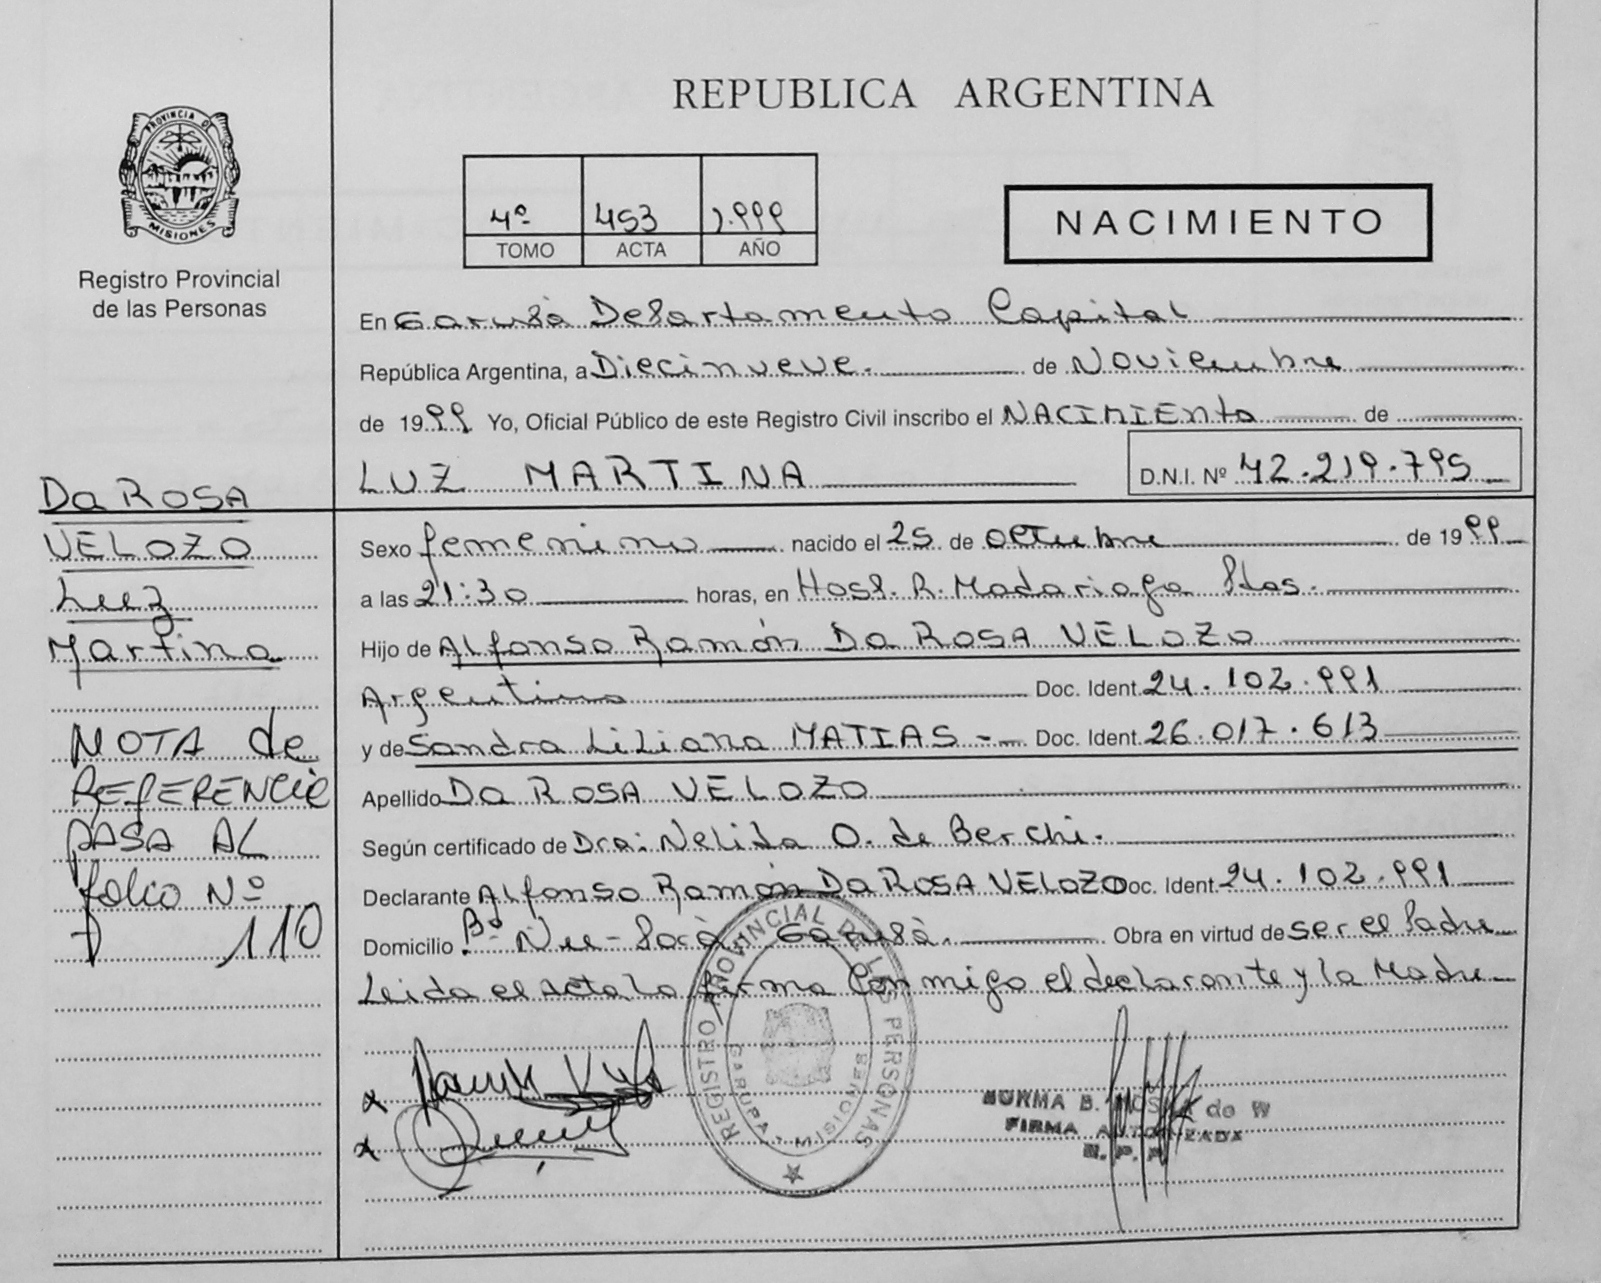 REPUBLICA ARGENTINA
PROVINCIA DE
MISIONES
Registro Provincial
de las Personas
4º 453 1.999
TOMO ACTA AÑO
NACIMIENTO
En Garupá Departamento Capital
República Argentina, a Diecinueve. de Noviembre
de 1999 Yo, Oficial Público de este Registro Civil inscribo el NACIMIENTO de
LUZ MARTINA D.N.I. Nº 42.219.795
Da ROSA
VELOZO
Luz
Martina
NOTA de
REFERENCIA
PASA AL
folio Nº
110
Sexo femenino nacido el 25 de octubre de 1999
a las 21:30 horas, en Hosp. R. Madariaga Pdas.
Hijo de Alfonso Ramón Da ROSA VELOZO
Argentino Doc. Ident. 24.102.991
y de Sandra Liliana MATIAS - Doc. Ident. 26.017.613
Apellido Da ROSA VELOZO
Según certificado de Dra: Nelida O. de Berchi.
Declarante Alfonso Ramón Da ROSA VELOZO Doc. Ident. 24.102.991
Domicilio Bº Ñu-Porá Garupá. Obra en virtud de ser el Padre
Leida el acta la firma conmigo el declarante y la Madre
REGISTRO PROVINCIAL DE LAS PERSONAS
GARUPA - MISIONES
NORMA B. de W
FIRMA AUTORIZADA
R. P. P.